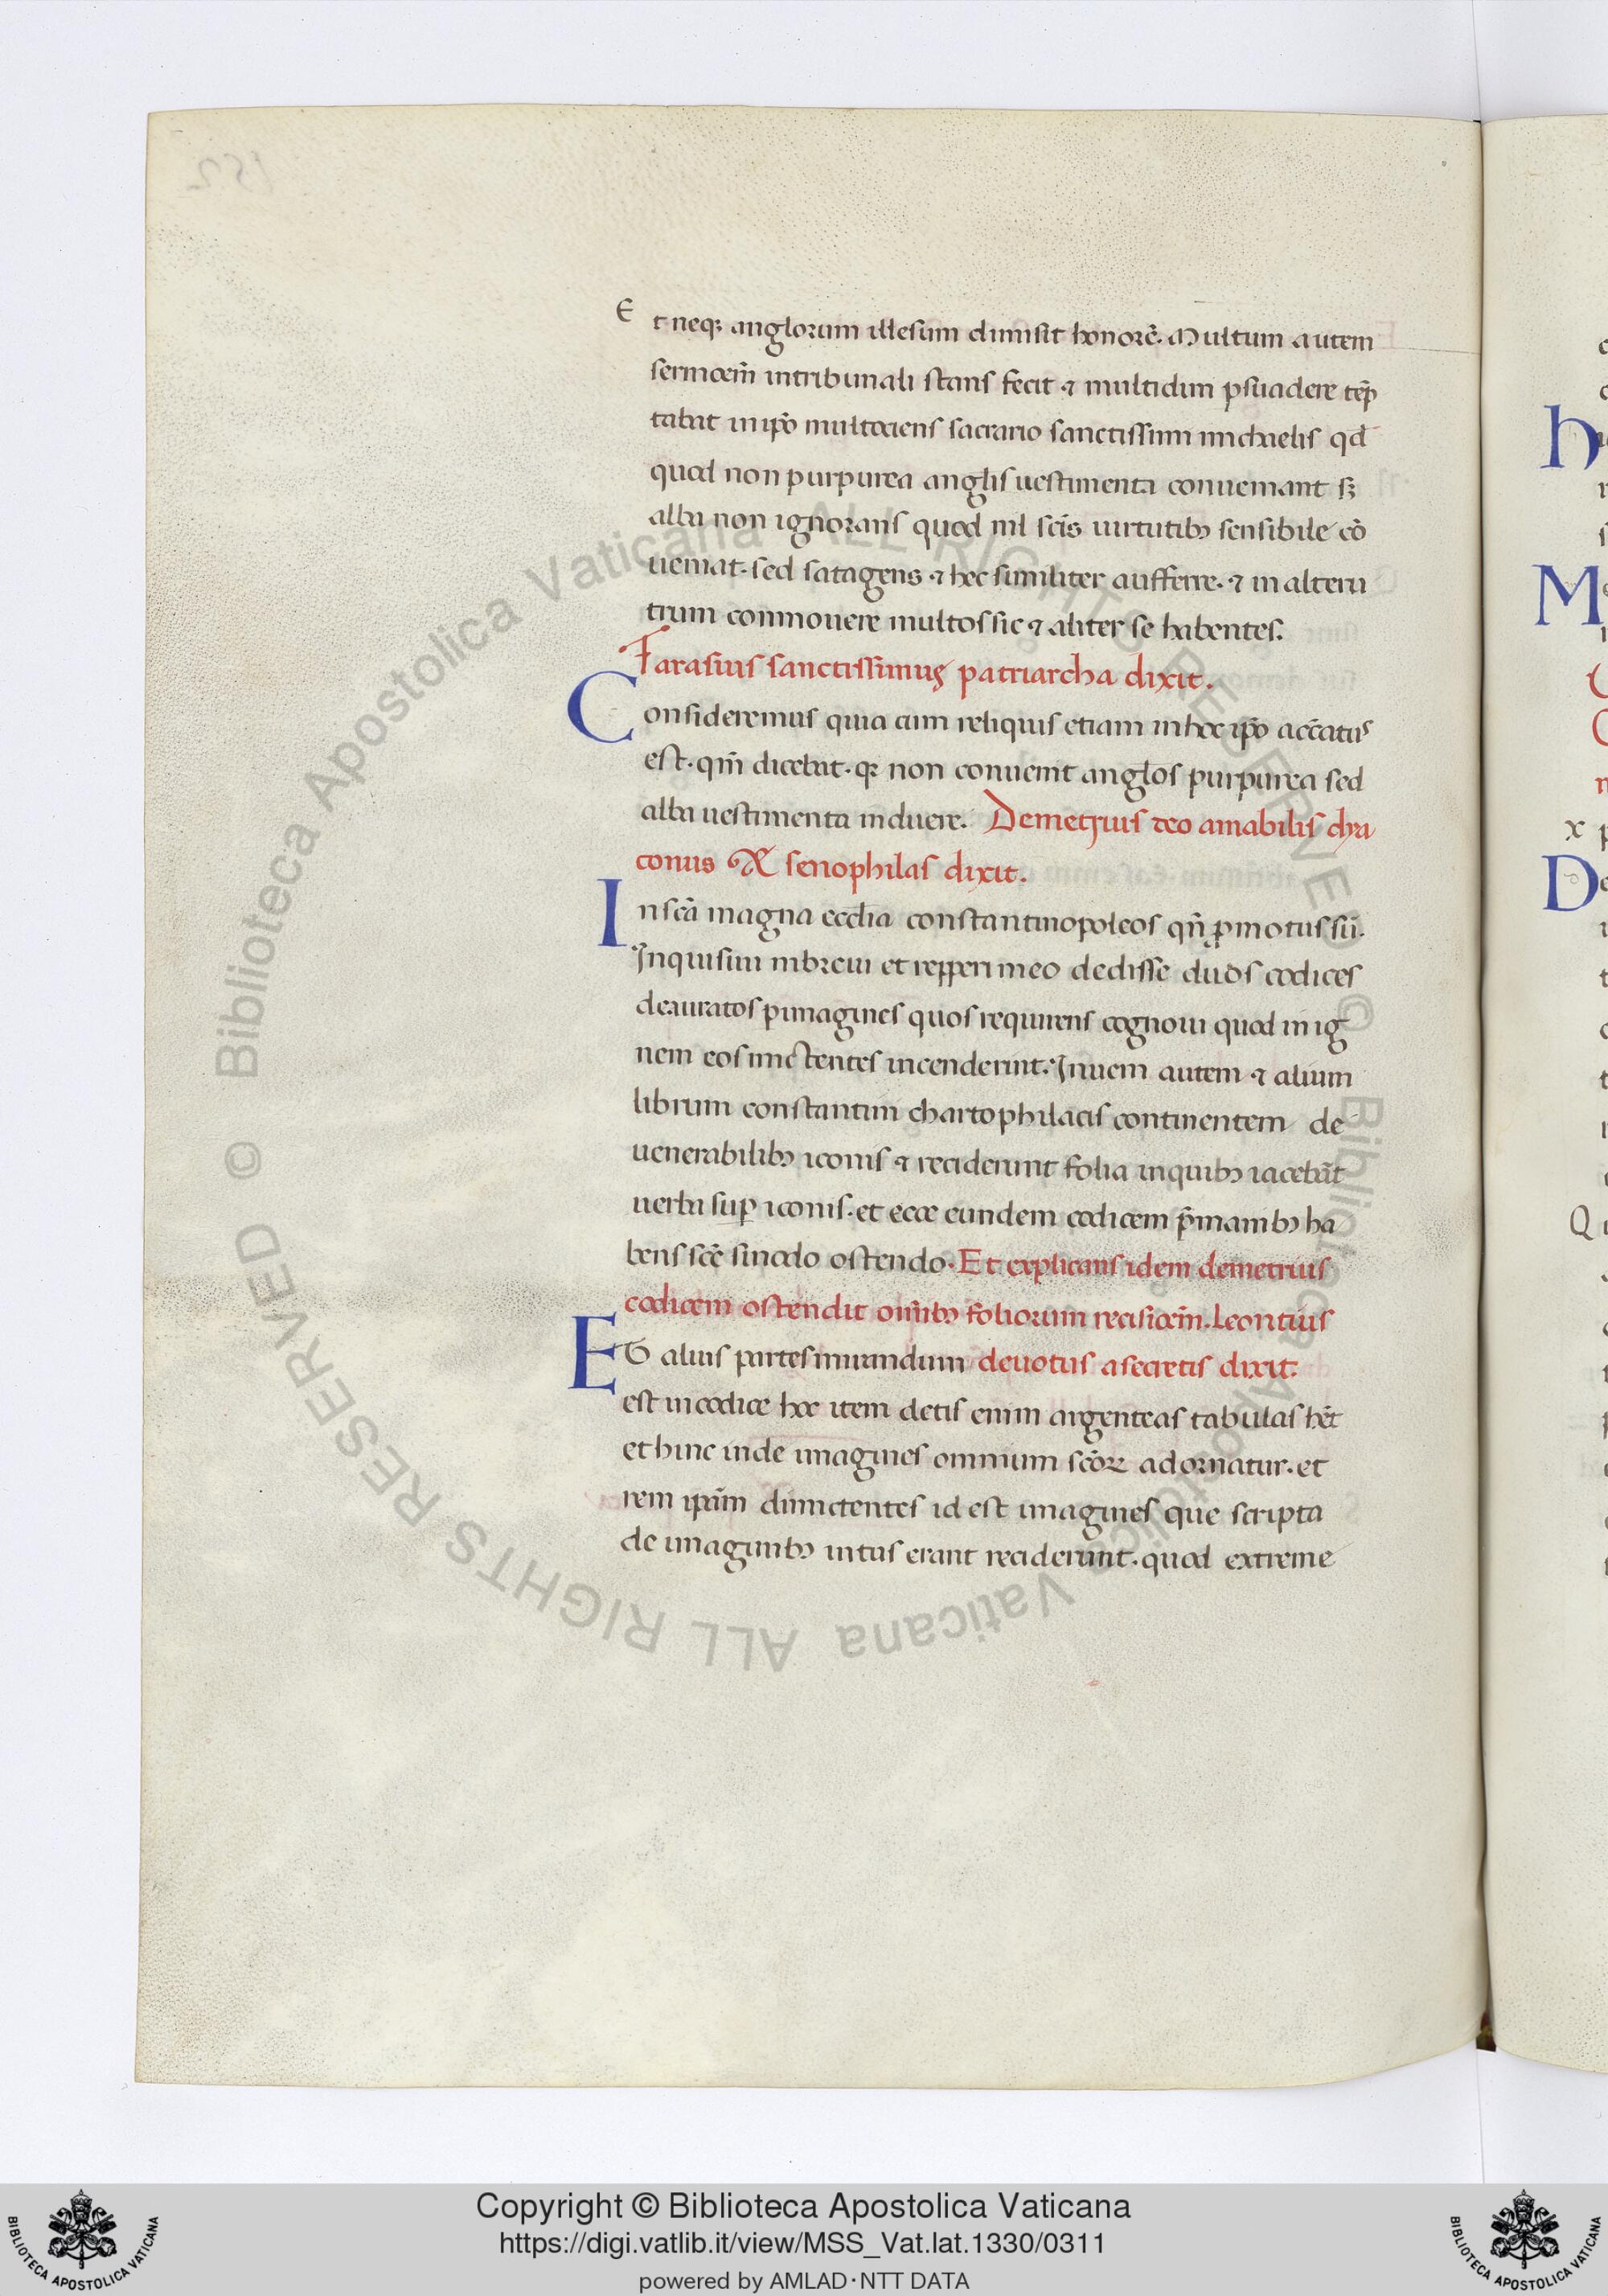 Et neqꝫ anglorum illesum dimisit honorē. Multum autem
sermoem̄ intribunali stans fecit ⁊ multidim ꝑsuadere tēp
tabat inip̄o multociens sacrario sanctissimi michaelis qđ
quod non purpurea anglis uestimenta conueniant sꝫ
alba non ignorans quod nil scīs uirtutibꝫ sensibile cō
ueniat. sed satagens ⁊ hec similiter aufferre. ⁊ in alteru
trum conmouere multos sic ⁊ aliter se habentes.
Tarasius sanctissimus patriarcha dixit.
Consideremus quia cum reliquis etiam inhoc ip̄o accc̄atus
est. qm̄ dicebat. qꝛ non conuenit anglos purpurea sed
alba uestimenta induere. Demetrius deo amabilis dya
conus & senophilas dixit.
Inscā magna eccl̄ia constantinopoleos qn̄ ꝓmotus sū.
Inquisiui inbreui et repperi meo dedisse duos codices
deauratos ꝑimagines quos requirens cognoui quod in ig
nem eos mictentes incenderint. Inueni autem ⁊ alium
librum constantini chartophilacis continentem de
uenerabilibꝫ iconis ⁊ reciderunt folia inquibꝫ iacebāt
uerba suꝑ iconis. et ecce eundem codicem p̄manibꝫ ha
bens scē sinodo ostendo. Et explicans idem demetrius
codicem ostendit oīnibꝫ foliorum recisioem̄. Leontius
Et alius partes mirandum deuotus asecretis dixit.
est incodice hoc item detis enim argenteas tabulas hēt
et hinc inde imagines omnium scōꝝ adornatur. et
rem ipām dimictentes id est imagines que scripta
de imaginibꝫ intus erant reciderunt. quod extreme
Copyright © Biblioteca Apostolica Vaticana
https://digi.vatlib.it/view/MSS_Vat.lat.1330/0311
powered by AMLAD·NTT DATA
© Biblioteca Apostolica Vaticana ALL RIGHTS RESERVED
© Biblioteca Apostolica Vaticana ALL RIGHTS RESERVED
BIBLIOTECA APOSTOLICA VATICANA
BIBLIOTECA APOSTOLICA VATICANA